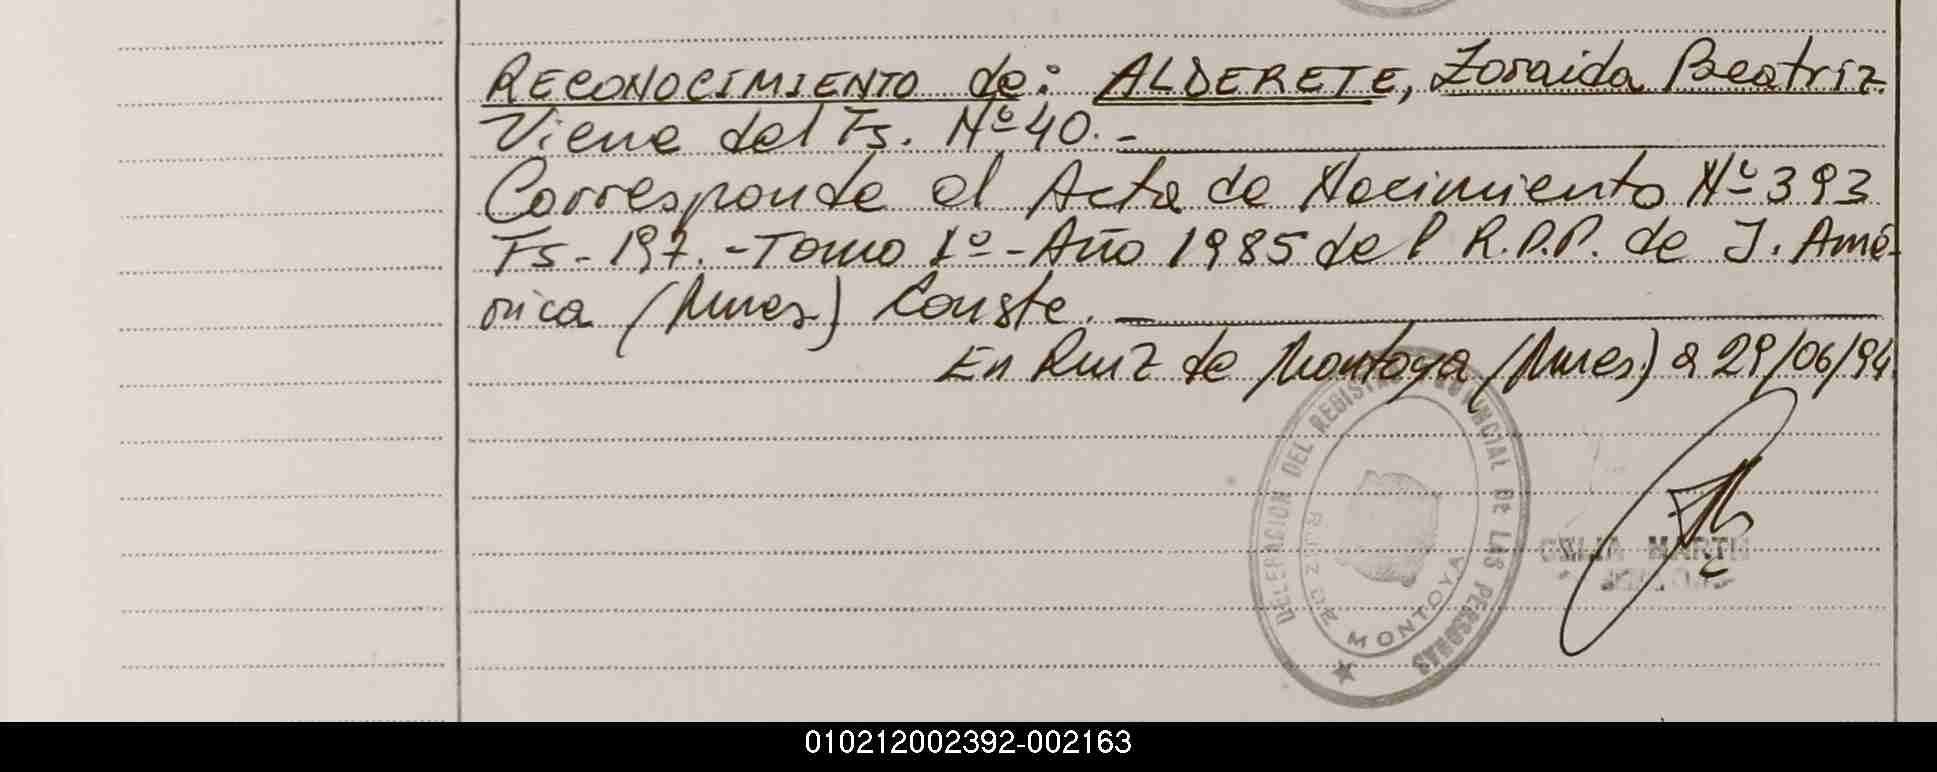 RECONOCIMIENTO de: ALDERETE, Zoraida Beatriz.
Viene del Fs. Nº 40.-
Corresponde al Acta de Nacimiento Nº 393
Fs- 197.-Tomo 1º-Año 1985 del R.P.P. de J. Amé-
rica (Mnes) Conste.
En Ruiz de Montoya (Mnes) a 29/06/94
DELEGACION DEL REGISTRO PROVINCIAL DE LAS PERSONAS
RUIZ DE MONTOYA
CELIA MARTI
010212002392-002163